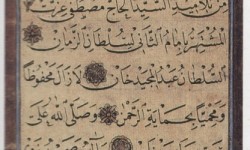 من تلاميذ السيد الحاج مصطفى عزت
المشهر بامام الثاني سلطان الزمان
السلطان عبد المجيد خان لازال محفوظا
ومحميا بحماية الرحمن وصلى الله على